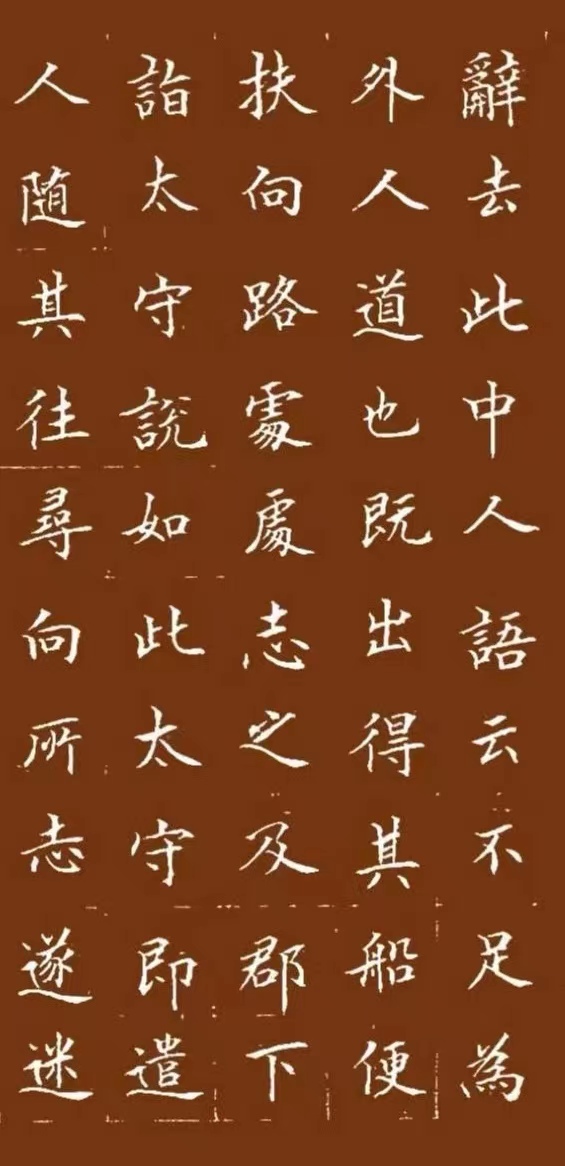 辭去此中人語云不足為
外人道也既出得其船便
扶向路處處志之及郡下
詣太守說如此太守即遣
人随其往尋向所志遂迷